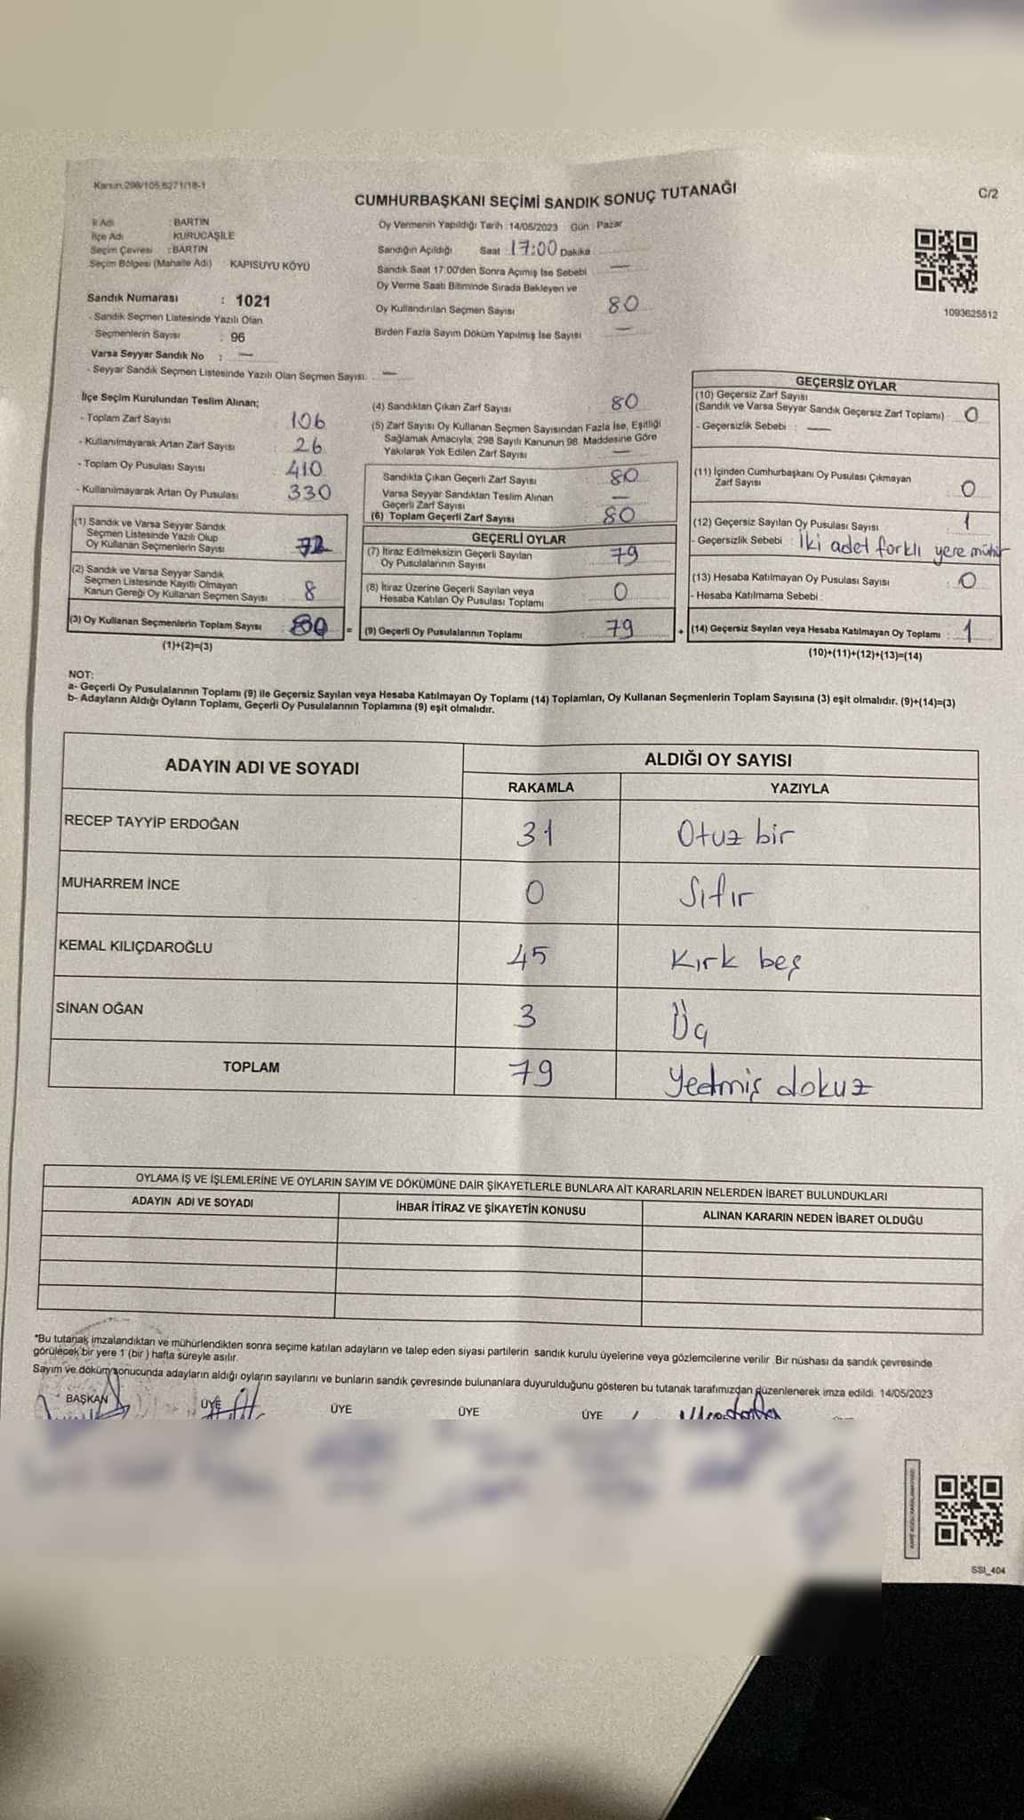 Kanun:298/105,6271/18-1
CUMHURBAŞKANI SEÇİMİ SANDIK SONUÇ TUTANAĞI
C/2
İl Adı : BARTIN
İlçe Adı : KURUCAŞİLE
Seçim Çevresi : BARTIN
Seçim Bölgesi (Mahalle Adı) KAPISUYU KÖYÜ
Sandık Numarası : 1021
- Sandık Seçmen Listesinde Yazılı Olan
Seçmenlerin Sayısı : 96
Varsa Seyyar Sandık No : —
- Seyyar Sandık Seçmen Listesinde Yazılı Olan Seçmen Sayısı: —
Oy Vermenin Yapıldığı Tarih :14/05/2023 Gün : Pazar
Sandığın Açıldığı Saat 17:00 Dakika
Sandık Saat 17:00'den Sonra Açımış İse Sebebi —
Oy Verme Saati Bitiminde Sırada Bekleyen ve
Oy Kullandırılan Seçmen Sayısı 80
Birden Fazla Sayım Döküm Yapılmış İse Sayısı —
1093625512
İlçe Seçim Kurulundan Teslim Alınan;
- Toplam Zarf Sayısı 106
- Kullanılmayarak Artan Zarf Sayısı 26
- Toplam Oy Pusulası Sayısı 410
- Kullanılmayarak Artan Oy Pusulası 330
(1) Sandık ve Varsa Seyyar Sandık
Seçmen Listesinde Yazılı Olup
Oy Kullanan Seçmenlerin Sayısı 72
(2) Sandık ve Varsa Seyyar Sandık
Seçmen Listesinde Kayıtlı Olmayan
Kanun Gereği Oy Kullanan Seçmen Sayısı 8
(3) Oy Kullanan Seçmenlerin Toplam Sayısı 80 =
(1)+(2)=(3)
(4) Sandıktan Çıkan Zarf Sayısı 80
(5) Zarf Sayısı Oy Kullanan Seçmen Sayısından Fazla İse, Eşitliği
Sağlamak Amacıyla, 298 Sayılı Kanunun 98. Maddesine Göre
Yakılarak Yok Edilen Zarf Sayısı —
Sandıkta Çıkan Geçerli Zarf Sayısı 80
Varsa Seyyar Sandıktan Teslim Alınan
Geçerli Zarf Sayısı —
(6) Toplam Geçerli Zarf Sayısı 80
GEÇERLİ OYLAR
(7) İtiraz Edilmeksizin Geçerli Sayılan
Oy Pusulalarının Sayısı 79
(8) İtiraz Üzerine Geçerli Sayılan veya
Hesaba Katılan Oy Pusulası Toplamı 0
(9) Geçerli Oy Pusulalarının Toplamı 79 +
GEÇERSİZ OYLAR
(10) Geçersiz Zarf Sayısı
(Sandık ve Varsa Seyyar Sandık Geçersiz Zarf Toplamı) 0
- Geçersizlik Sebebi : —
(11) İçinden Cumhurbaşkanı Oy Pusulası Çıkmayan
Zarf Sayısı 0
(12) Geçersiz Sayılan Oy Pusulası Sayısı 1
- Geçersizlik Sebebi : İki adet farklı yere mühür
(13) Hesaba Katılmayan Oy Pusulası Sayısı : 0
- Hesaba Katılmama Sebebi :
(14) Geçersiz Sayılan veya Hesaba Katılmayan Oy Toplamı : 1
(10)+(11)+(12)+(13)=(14)
NOT:
a- Geçerli Oy Pusulalarının Toplamı (9) ile Geçersiz Sayılan veya Hesaba Katılmayan Oy Toplamı (14) Toplamları, Oy Kullanan Seçmenlerin Toplam Sayısına (3) eşit olmalıdır. (9)+(14)=(3)
b- Adayların Aldığı Oyların Toplamı, Geçerli Oy Pusulalarının Toplamına (9) eşit olmalıdır.
ADAYIN ADI VE SOYADI
ALDIĞI OY SAYISI
RAKAMLA YAZIYLA
RECEP TAYYİP ERDOĞAN 31 Otuz bir
MUHARREM İNCE 0 Sıfır
KEMAL KILIÇDAROĞLU 45 Kırk beş
SİNAN OĞAN 3 Üç
TOPLAM 79 Yetmiş dokuz
OYLAMA İŞ VE İŞLEMLERİNE VE OYLARIN SAYIM VE DÖKÜMÜNE DAİR ŞİKAYETLERLE BUNLARA AİT KARARLARIN NELERDEN İBARET BULUNDUKLARI
ADAYIN ADI VE SOYADI İHBAR İTİRAZ VE ŞİKAYETİN KONUSU ALINAN KARARIN NEDEN İBARET OLDUĞU
*Bu tutanak imzalandıktan ve mühürlendikten sonra seçime katılan adayların ve talep eden siyasi partilerin sandık kurulu üyelerine veya gözlemcilerine verilir. Bir nüshası da sandık çevresinde
görülecek bir yere 1 (bir) hafta süreyle asılır.
Sayım ve döküm sonucunda adayların aldığı oyların sayılarını ve bunların sandık çevresinde bulunanlara duyurulduğunu gösteren bu tutanak tarafımızdan düzenlenerek imza edildi. 14/05/2023
BAŞKAN ÜYE ÜYE ÜYE ÜYE
SSI_404